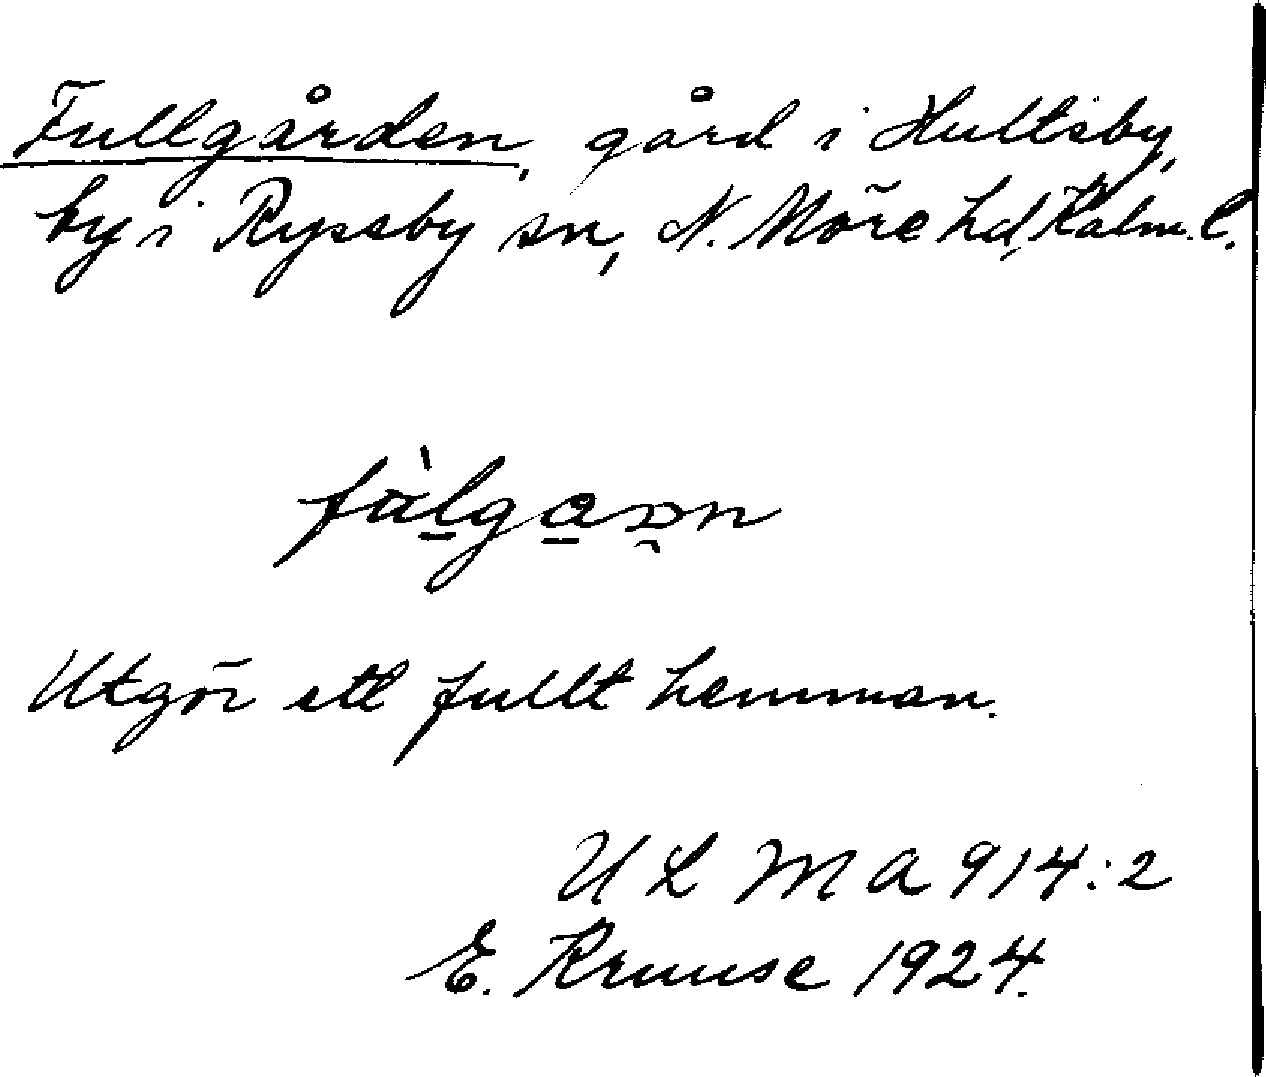 Fullgården, gård i Hultsby,
by i Ryssby sn, N. Möre hd, Kalm. l.
Utgör ett fullt hemman.
U L M A 914:2
E. Kruuse 1924.